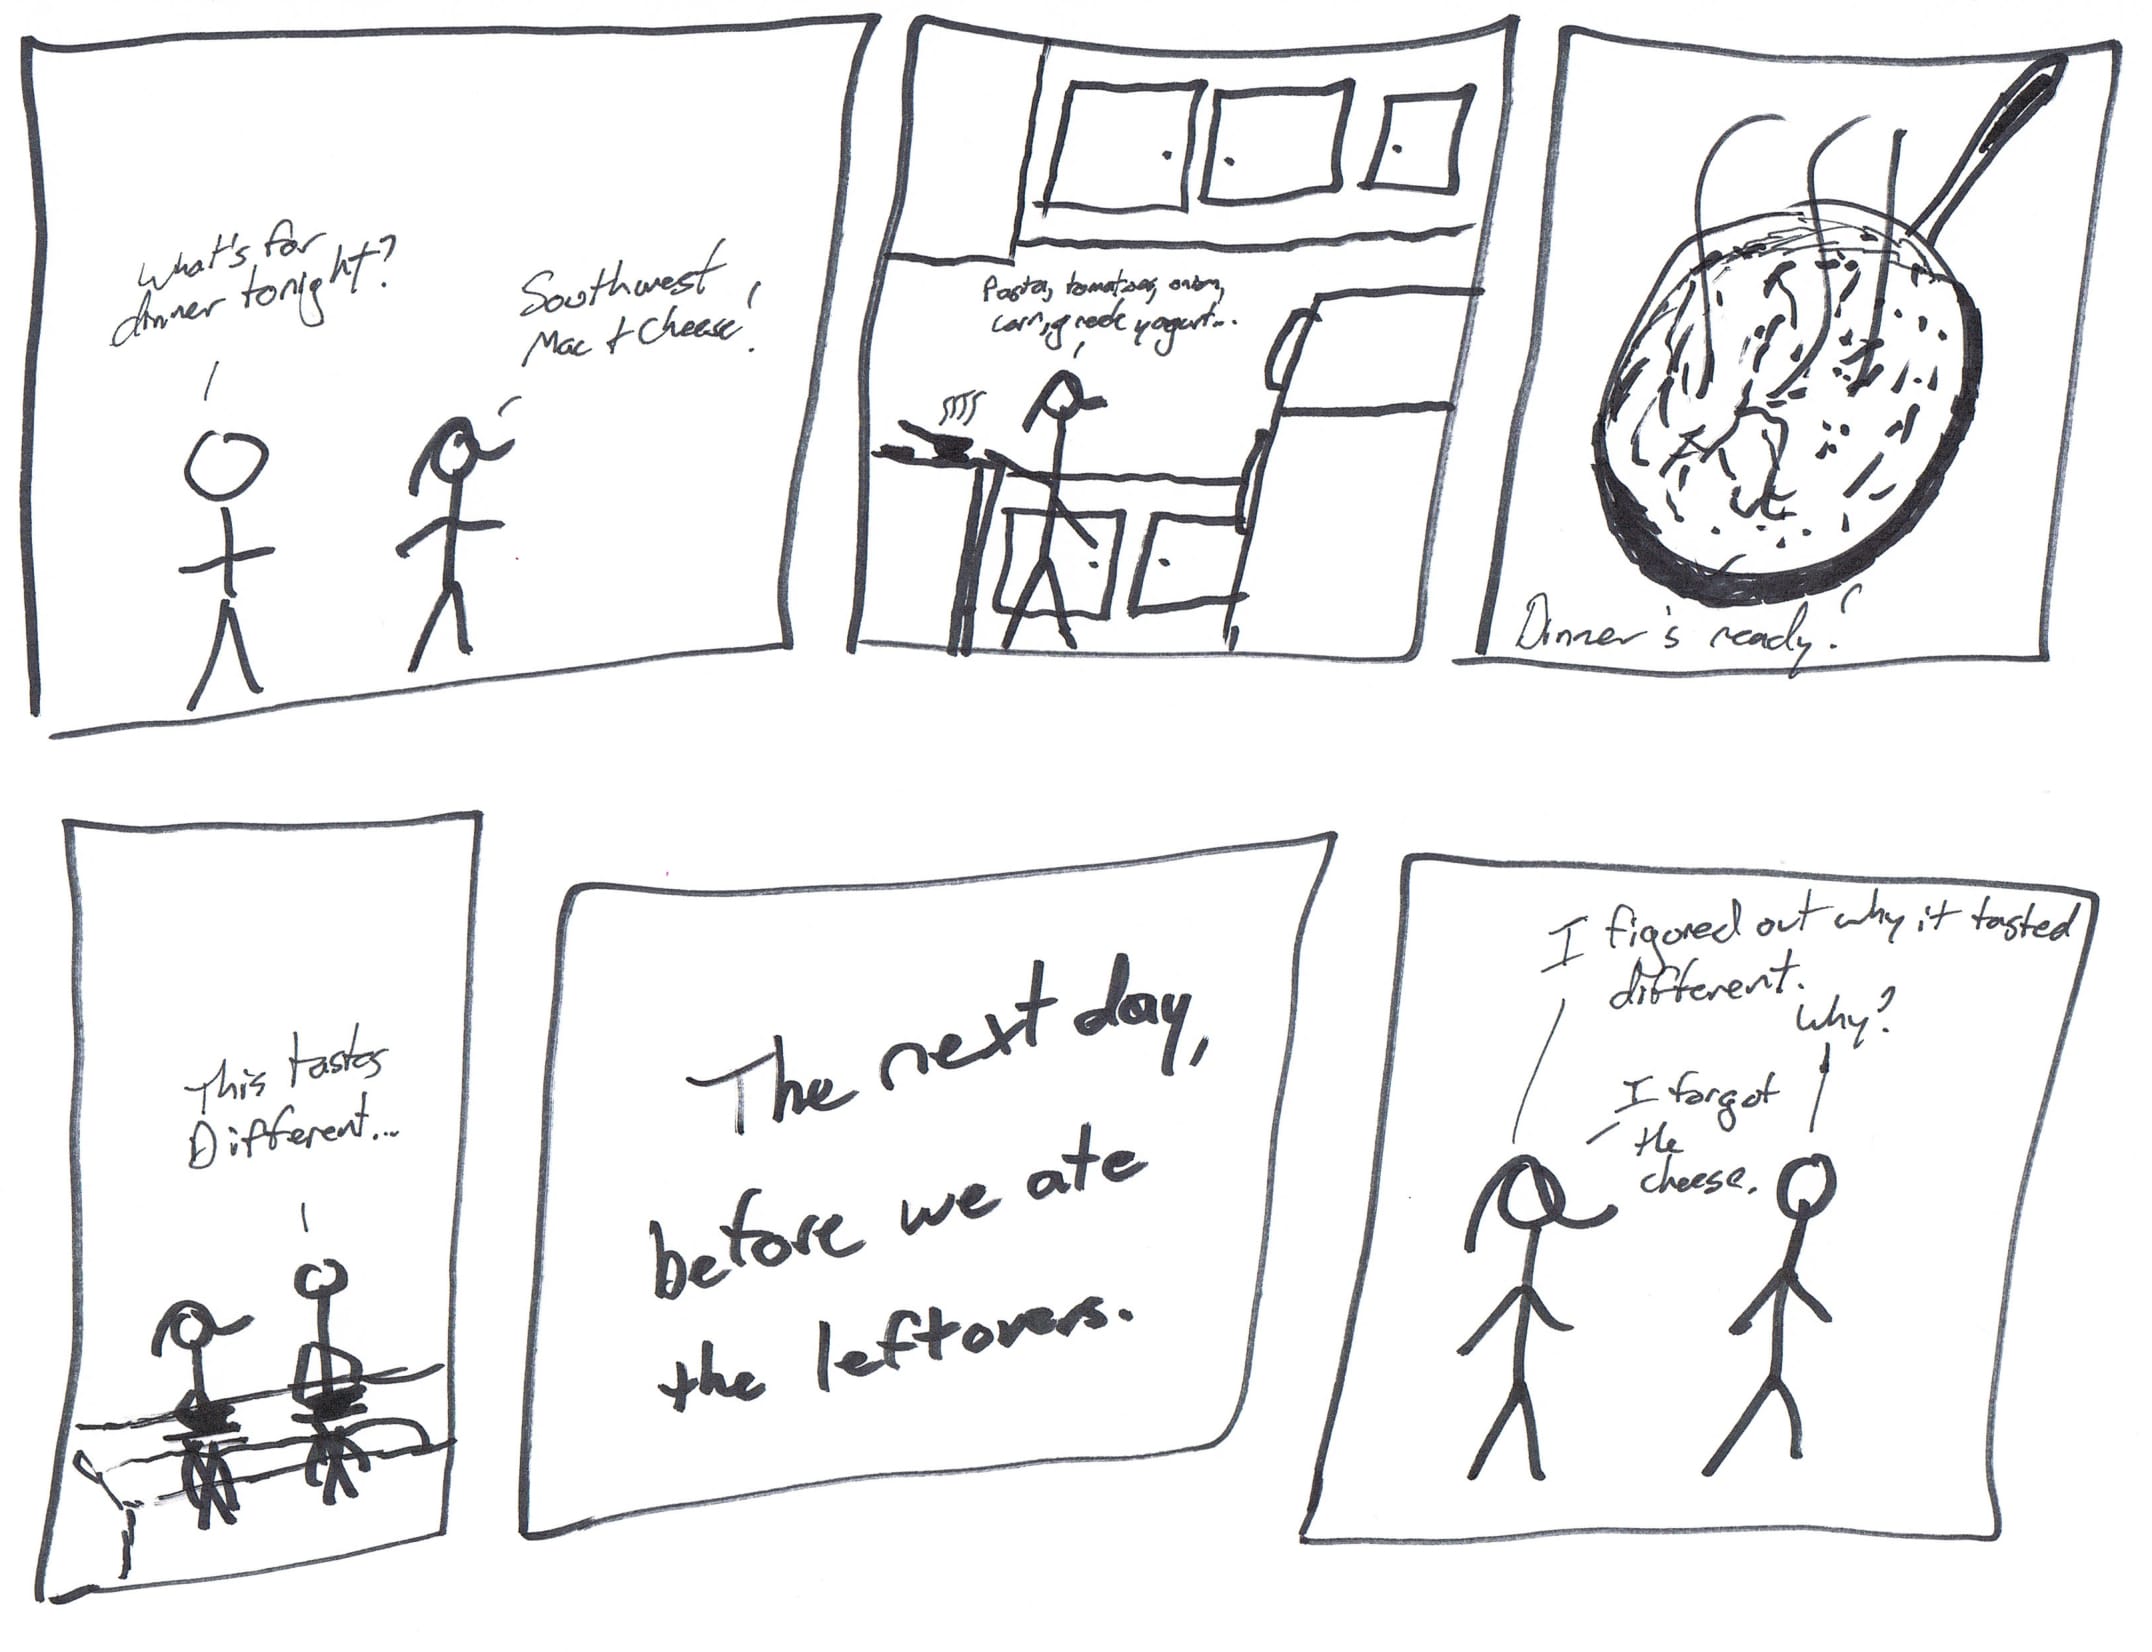 What's for
dinner tonight?
Southwest
Mac + Cheese!
Pasta, tomatoes, onion,
corn, greek yogurt...
Dinner's ready!
This tastes
Different...
The next day,
before we ate
the leftovers.
I figured out why it tasted
different.
Why?
I forgot
the
cheese.